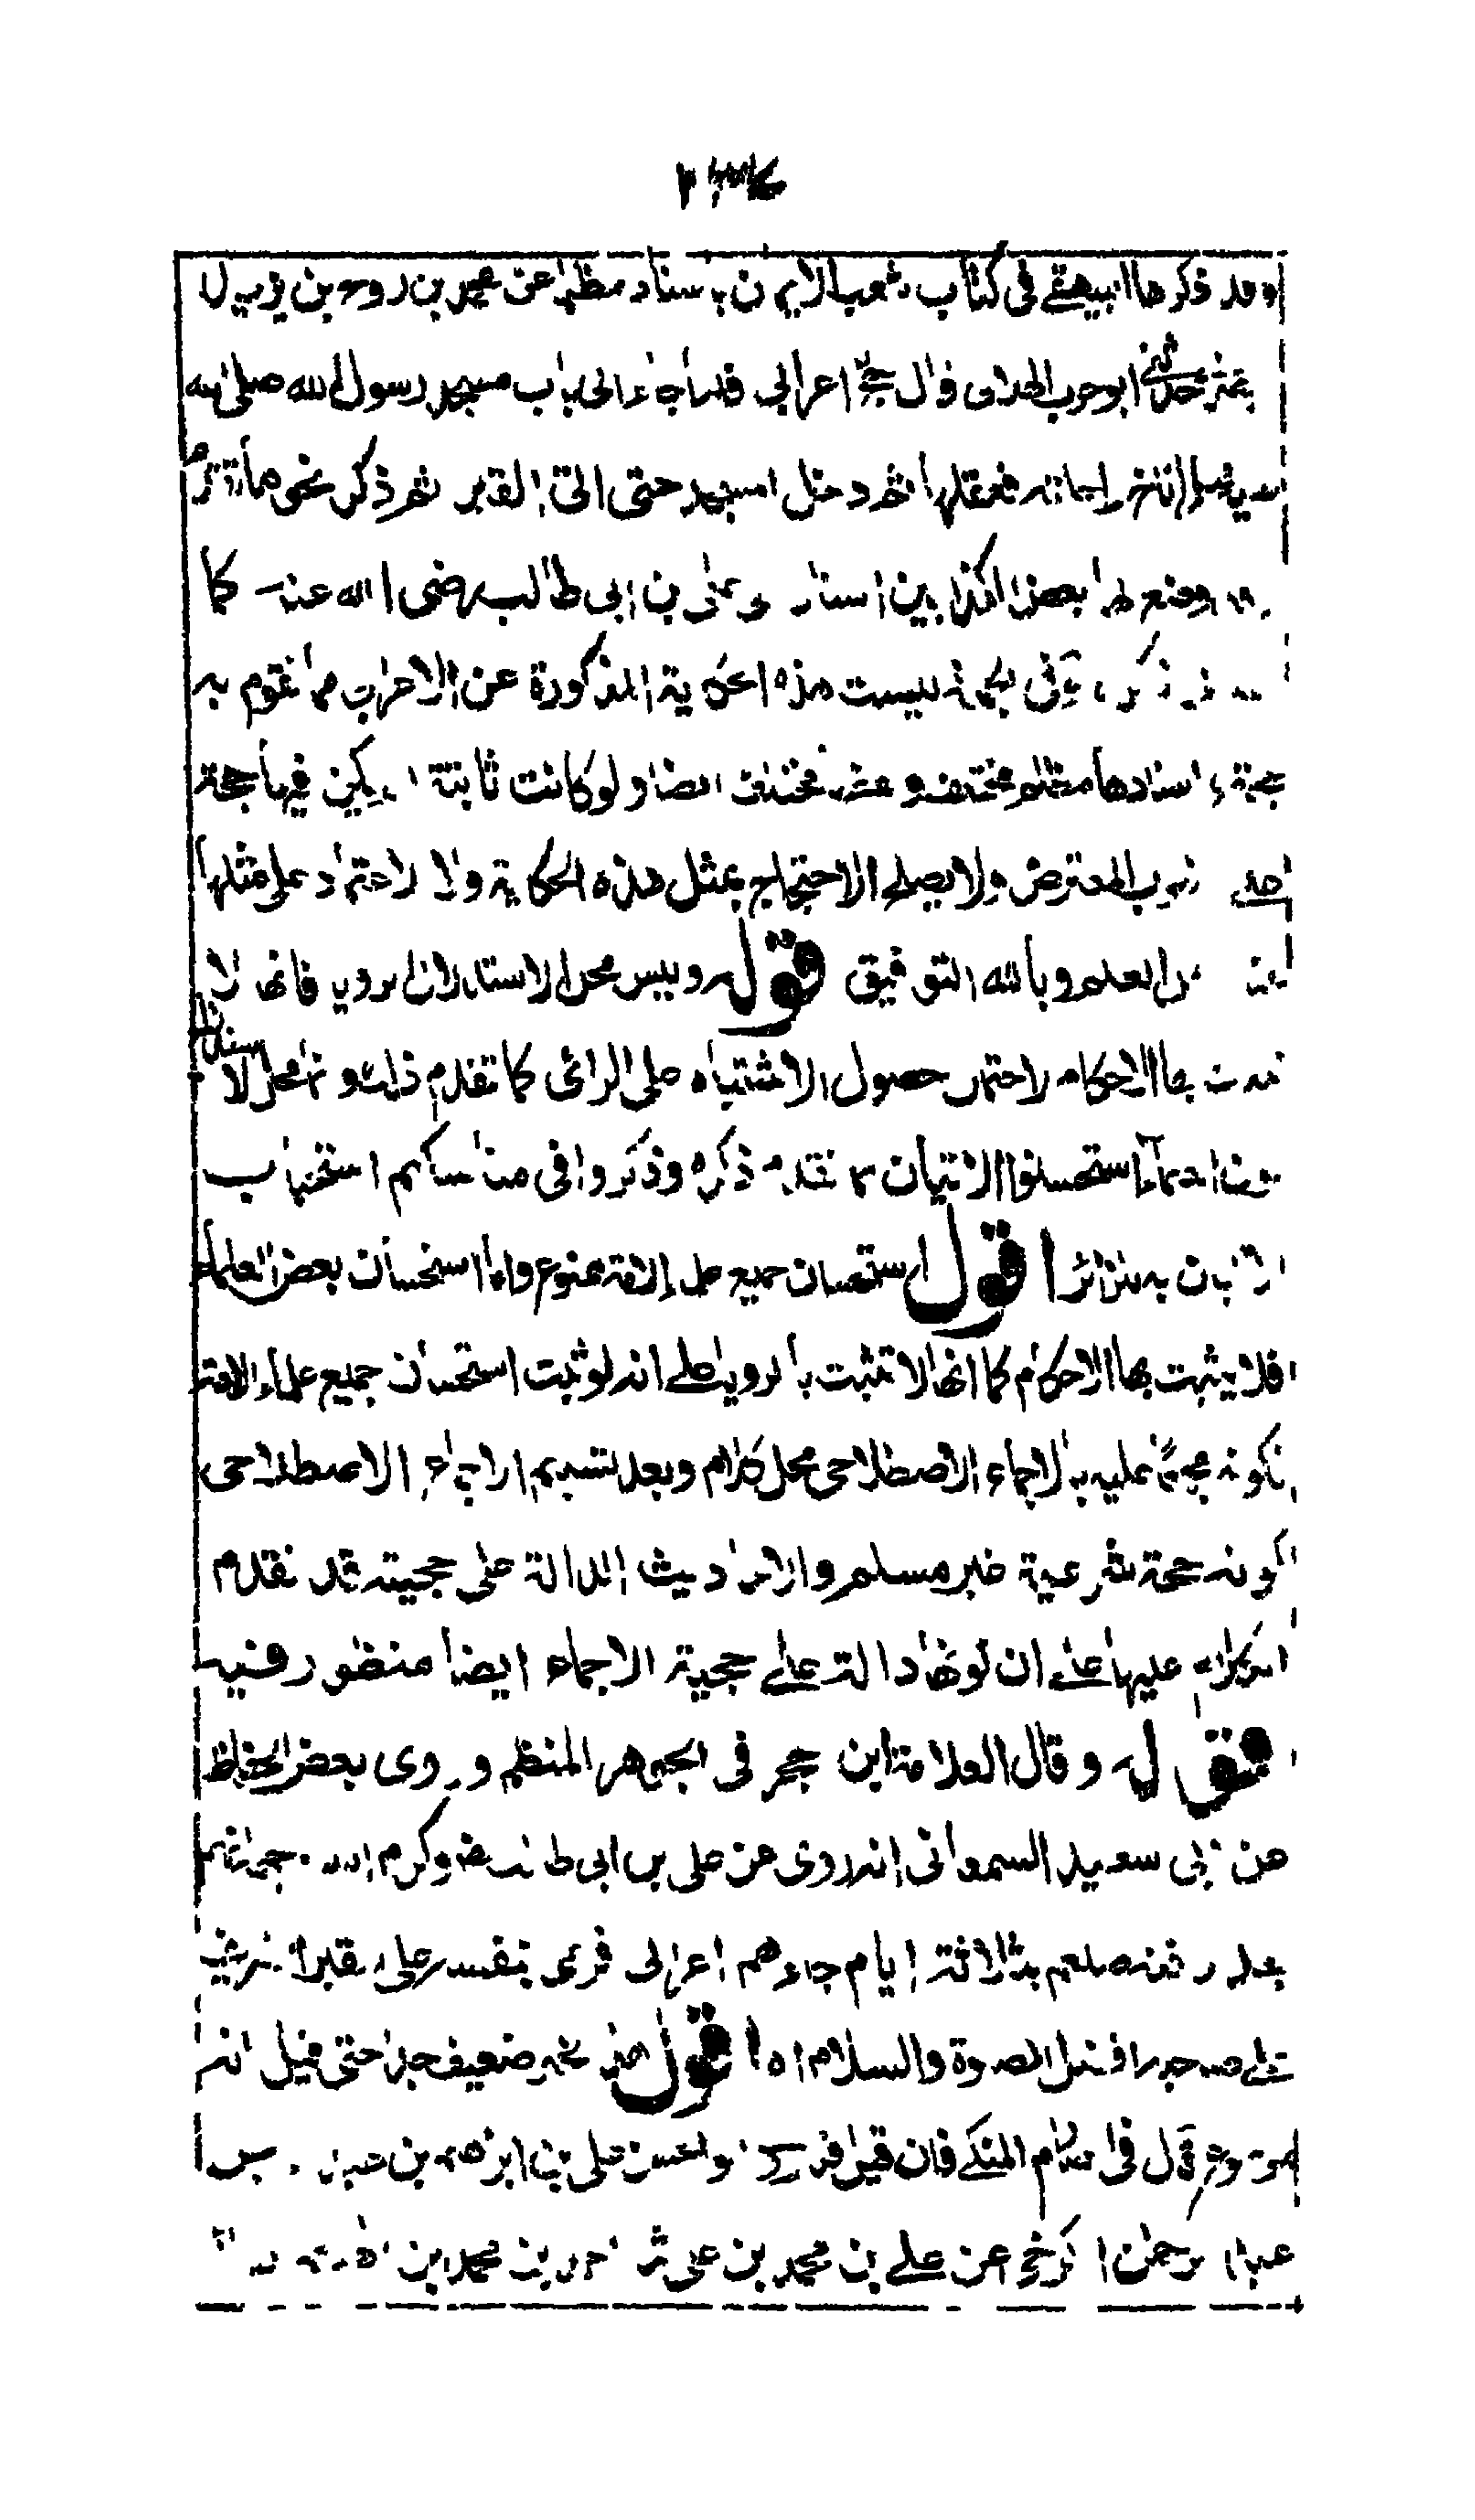 وقد ذكرها البيهقي في كتاب شعب الايمان باسناد مظلم عن محمد بن روح بن يزيد
حدثني ابو حرب الهلالى قال حج اعرابي فلما جاء الى باب مسجد رسول الله صلى الله
عليه وسلم اناخ راحلته فعقلها ثم دخل المسجد حتى اتى القبر ثم ذكر نحو ما تقدم
ووضع لها بعض الكذابين اسنادا الى على بن ابي طالب رضى الله عنه كما
ليست هذه الحكاية المذكورة عن الاعرابى مما تقوم به
حجة واسنادها مظلم مختلف ولفظها مختلف ايضا ولو كانت ثابتة لم يكن فيها حجة
على مطلوب المعترض ولا يصلح الاحتجاج بمثل هذه الحكاية ولا الاعتماد على مثلها
عند اهل العلم وبالله التوفيق قوله وليس محل الاستدلال الرويا فانها لا
تثبت بها الاحكام لاحتمال حصول الاشتباه على الرائى كما تقدم ذلك وانما محل الاستدلال
كون العلماء استحسنوا الاتيان بما تقدم ذكره وذكروا في مناسكهم استحباب
الاتيان به للزائر اقول استحسان جميع علماء الامة ممنوع واما استحسان بعض العلماء
فلا يثبت بها الاحكام كما انها لا تثبت بالرويا على انه لو ثبت استحسان جميع علماء الامة
لكونه مجمعا عليه بالاجماع الاصطلاحى محل كلام وبعد تسليم الاجماع الاصطلاحى
كونه حجة شرعية غير مسلم والاحاديث الدالة على حجيته قد تقدم
الكلام عليها على ان كونها دالة على حجية الاجماع ايضا منظور فيه
قوله وقال العلامة ابن حجر في الجوهر المنظم وروى بعض الحفاظ
عن ابى سعيد السمعانى انه روى عن على بن ابى طالب رض وكرم الله وجهه انهم
بعد دفنه صلعم بثلاثة ايام جاءهم اعرابى فرمى بنفسه على القبر الشريف
على صاحبه افضل الصلوة والسلام اه اقول هذا خبر ضعيف جدا حتى قيل انه
موضوع قال فى الصارم المنكى فان قيل فقد روى ابو الحسن على بن ابراهيم بن عبد الله بن
عبد الرحمن الكرخى عن على بن محمد بن على ثنا احمد بن محمد بن